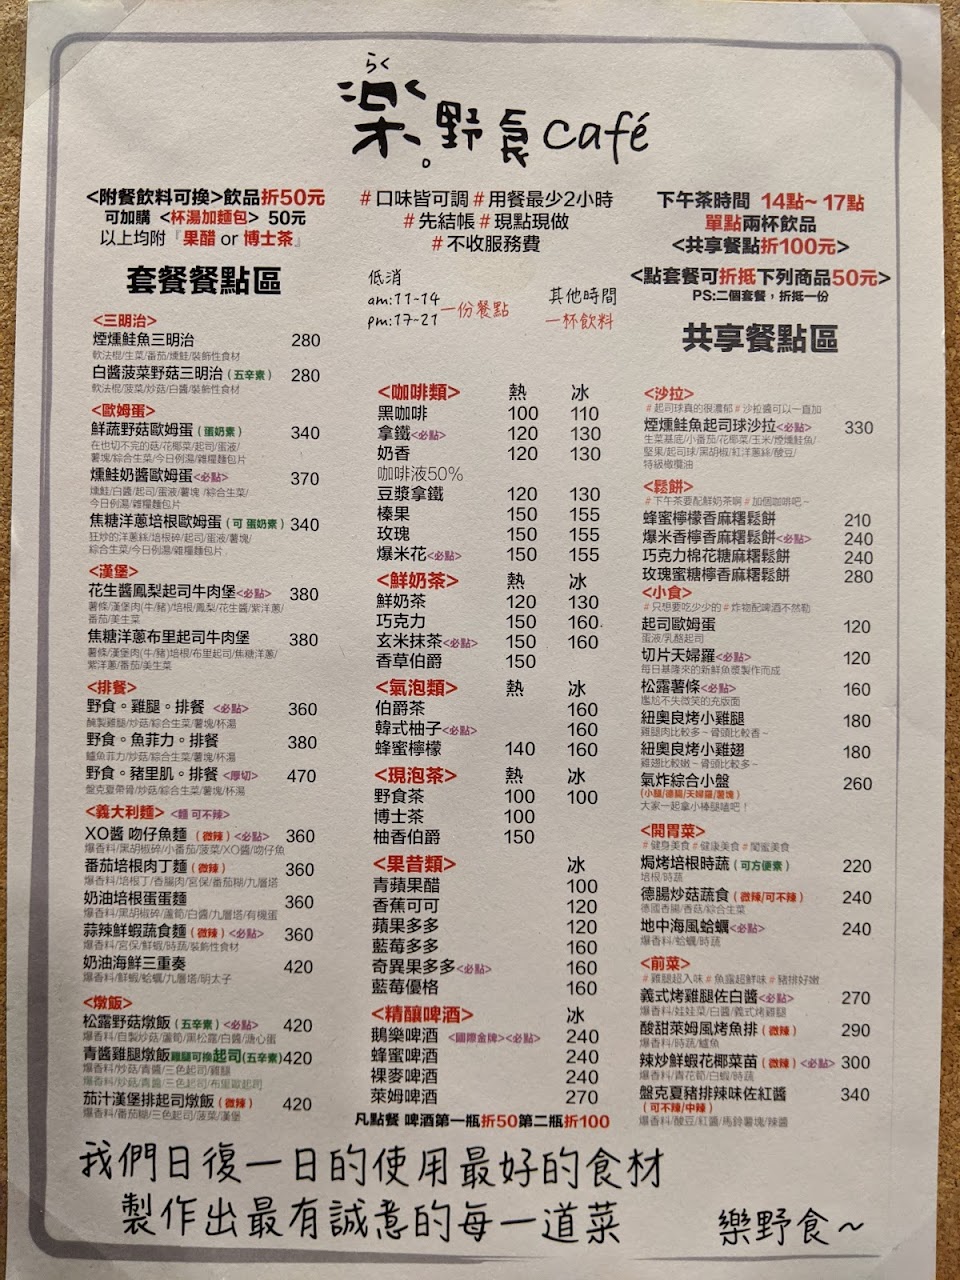 らく
樂。野食café
<附餐飲料可換>飲品折50元
可加購 <杯湯加麵包> 50元
以上均附『果醋 or 博士茶』
#口味皆可調 #用餐最少2小時
#先結帳 #現點現做
#不收服務費
下午茶時間 14點~ 17點
單點兩杯飲品
<共享餐點折100元>
<點套餐可折抵下列商品50元>
PS:二個套餐，折抵一份
低消
am:11-14
pm:17-21
一份餐點
其他時間
一杯飲料
套餐餐點區
<三明治>
煙燻鮭魚三明治 280
軟法棍/生菜/番茄/燻鮭/裝飾性食材
白醬菠菜野菇三明治(五辛素) 280
軟法棍/菠菜/炒菇/白醬/裝飾性食材
<歐姆蛋>
鮮蔬野菇歐姆蛋(蛋奶素) 340
在也切不完的菇/花椰菜/起司/蛋液/
薯塊/綜合生菜/今日例湯/雜糧麵包片
燻鮭奶醬歐姆蛋<必點> 370
燻鮭/白醬/起司/蛋液/薯塊/綜合生菜/
今日例湯/雜糧麵包片
焦糖洋蔥培根歐姆蛋(可 蛋奶素) 340
狂炒的洋蔥絲/培根碎/起司/蛋液/薯塊/
綜合生菜/今日例湯/雜糧麵包片
<漢堡>
花生醬鳳梨起司牛肉堡<必點> 380
薯條/漢堡肉(牛/豬)培根/鳳梨/花生醬/紫洋蔥/
番茄/美生菜
焦糖洋蔥布里起司牛肉堡 380
薯條/漢堡肉(牛/豬)培根/布里起司/焦糖洋蔥/
紫洋蔥/番茄/美生菜
<排餐>
野食。雞腿。排餐 <必點> 360
醃製雞腿/炒菇/綜合生菜/薯塊/杯湯
野食。魚菲力。排餐 380
鱸魚菲力/炒菇/綜合生菜/薯塊/杯湯
野食。豬里肌。排餐 <厚切> 470
盤克夏帶骨/炒菇/綜合生菜/薯塊/杯湯
<義大利麵> <麵 可不辣>
XO醬 吻仔魚麵 (微辣)<必點> 360
爆香料/黑胡椒碎/小番茄/菠菜/XO醬/吻仔魚
番茄培根肉丁麵(微辣) 360
爆香料/培根丁/香腸肉/宮保/番茄糊/九層塔
奶油培根蛋蛋麵 360
爆香料/黑胡椒碎/蘆筍/白醬/九層塔/有機蛋
蒜辣鮮蝦蔬食麵(微辣)<必點> 360
爆香料/宮保/鮮蝦/時蔬/裝飾性食材
奶油海鮮三重奏 420
爆香料/鮮蝦/蛤蠣/九層塔/明太子
<燉飯>
松露野菇燉飯(五辛素)<必點> 420
爆香料/自製炒菇/蘆筍/黑松露/白醬/溏心蛋
青醬雞腿燉飯雞腿可換起司(五辛素) 420
爆香料/炒菇/青醬/三色起司/雞腿
爆香料/炒菇/青醬/三色起司/布里歐起司
茄汁漢堡排起司燉飯(微辣) 420
爆香料/番茄糊/三色起司/菠菜/漢堡
<咖啡類> 熱 冰
黑咖啡 100 110
拿鐵<必點> 120 130
奶香 120 130
咖啡液50%
豆漿拿鐵 120 130
榛果 150 155
玫瑰 150 155
爆米花<必點> 150 155
<鮮奶茶> 熱 冰
鮮奶茶 120 130
巧克力 150 160
玄米抹茶<必點> 150 160
香草伯爵 150
<氣泡類> 熱 冰
伯爵茶 160
韓式柚子<必點> 160
蜂蜜檸檬 140 160
<現泡茶> 熱 冰
野食茶 100 100
博士茶 100
柚香伯爵 150
<果昔類> 冰
青蘋果醋 100
香蕉可可 120
蘋果多多 120
藍莓多多 160
奇異果多多<必點> 160
藍莓優格 160
<精釀啤酒> 冰
鵝樂啤酒 <國際金牌><必點> 240
蜂蜜啤酒 240
裸麥啤酒 240
萊姆啤酒 270
凡點餐 啤酒第一瓶折50第二瓶折100
共享餐點區
<沙拉>
#起司球真的很濃郁 #沙拉醬可以一直加
煙燻鮭魚起司球沙拉<必點> 330
生菜基底/小番茄/花椰菜/玉米/煙燻鮭魚/
堅果/起司球/黑胡椒/紅洋蔥絲/酸豆/
特級橄欖油
<鬆餅>
#下午茶要配鮮奶茶啊 #加個咖啡吧~
蜂蜜檸檬香麻糬鬆餅 210
爆米香檸香麻糬鬆餅<必點> 240
巧克力棉花糖麻糬鬆餅 240
玫瑰蜜糖檸香麻糬鬆餅 280
<小食>
#只想要吃少少的 #炸物配啤酒不然勒
起司歐姆蛋 120
蛋液/乳酪起司
切片天婦羅<必點> 120
每日基隆來的新鮮魚漿製作而成
松露薯條<必點> 160
尷尬不失微笑的充版面
紐奧良烤小雞腿 180
雞腿肉比較多~骨頭比較香~
紐奧良烤小雞翅 180
雞翅比較嫩~骨頭比較多~
氣炸綜合小盤 260
(小腿/德腸/天婦羅/薯塊)
大家一起拿小棒腿嗑吧！
<開胃菜>
#健身美食 #健康美食 #閨蜜美食
焗烤培根時蔬(可方便素) 220
培根/時蔬
德腸炒菇蔬食(微辣/可不辣) 240
德國香腸/香菇/綜合生菜
地中海風蛤蠣<必點> 240
爆香料/蛤蠣/時蔬
<前菜>
#雞腿超入味 #魚露超鮮味 #豬排好嫩
義式烤雞腿佐白醬<必點> 270
爆香料/娃娃菜/白醬/義式烤雞腿
酸甜萊姆風烤魚排(微辣) 290
爆香料/時蔬/鱸魚
辣炒鮮蝦花椰菜苗(微辣)<必點> 300
爆香料/青花筍/白蝦/時蔬
盤克夏豬排辣味佐紅醬 340
(可不辣/中辣)
爆香料/酸豆/紅醬/馬鈴薯塊/辣醬
我們日復一日的使用最好的食材
製作出最有誠意的每一道菜
樂野食~